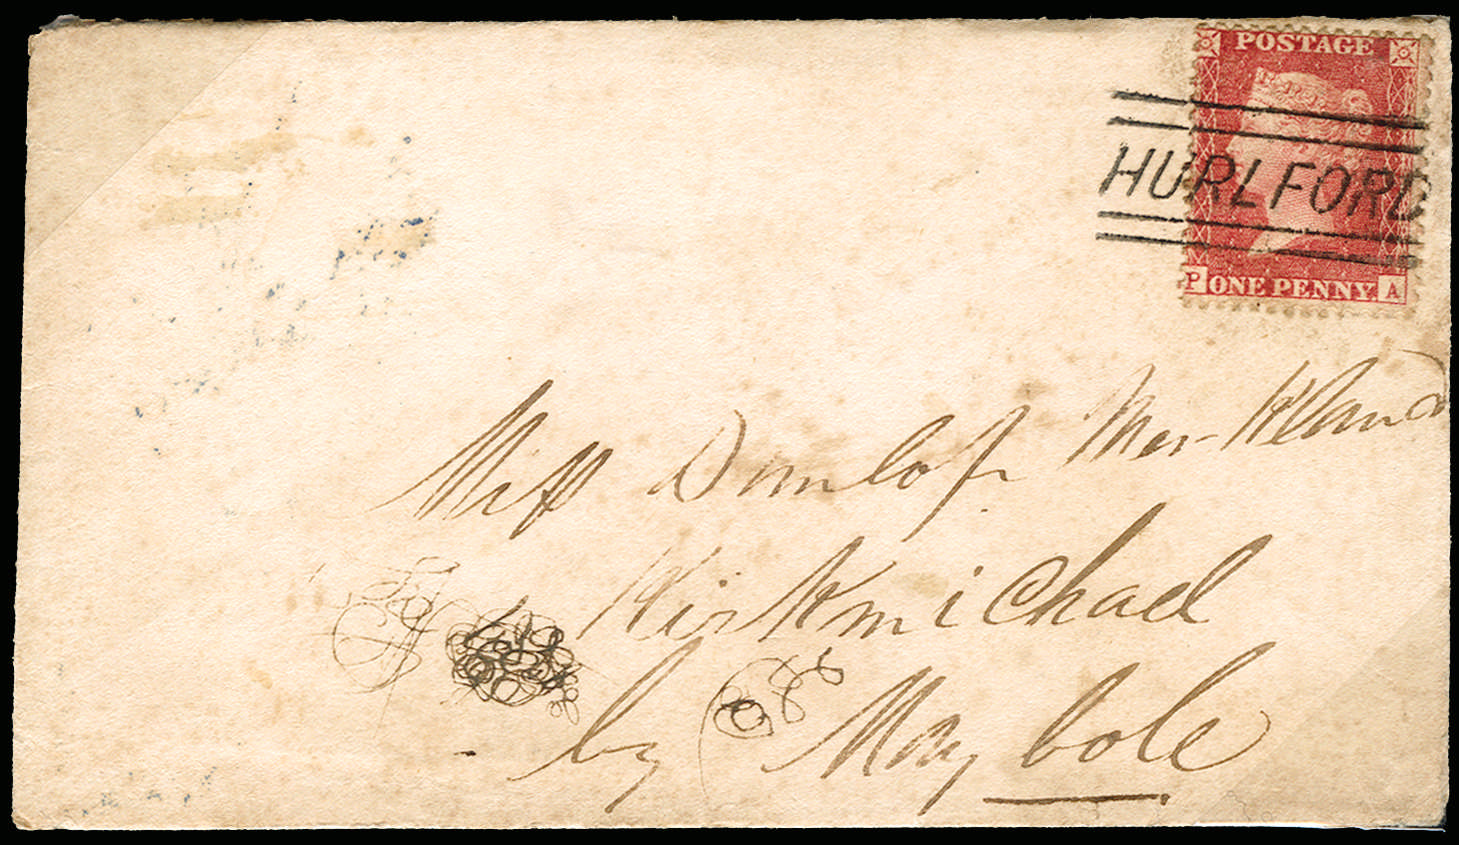 POSTAGE
HURLFORD
P ONE PENNY. A
Miss Dunlop
Kirkmichael
by Maybole